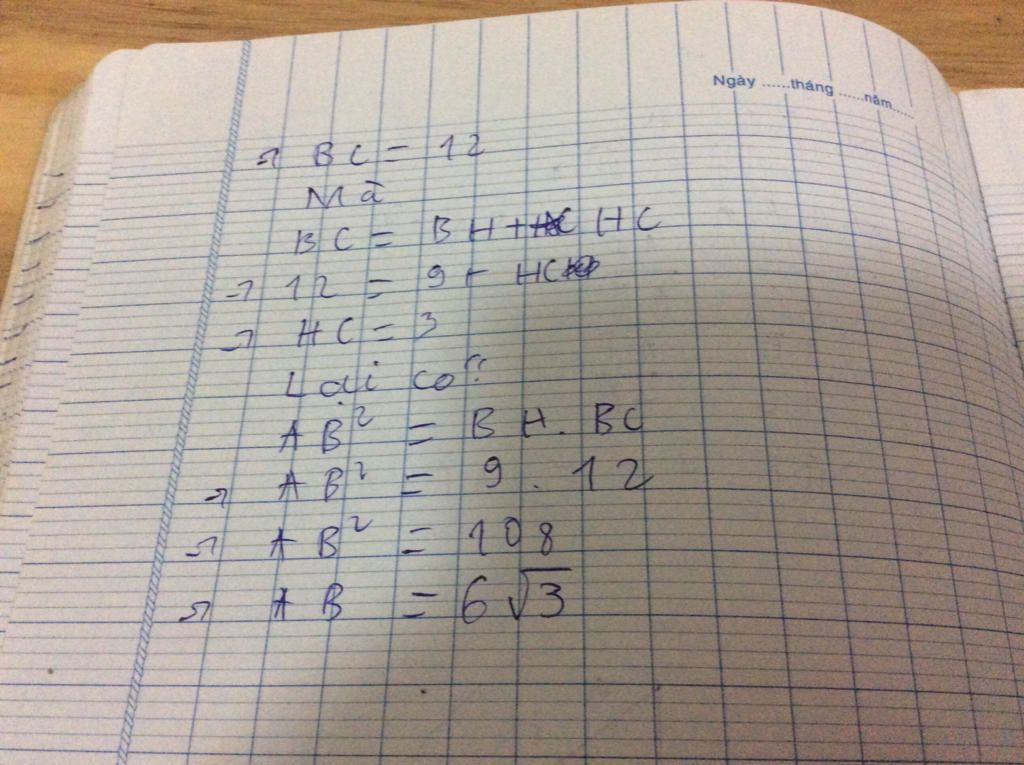 Ngày ......tháng ......năm......
→ BC = 12
Mà
BC = BH + HC
→ 12 = 9 + HC
→ HC = 3
Lại có:
AB² = BH . BC
→ AB² = 9 . 12
→ AB² = 108
→ AB = 6√3